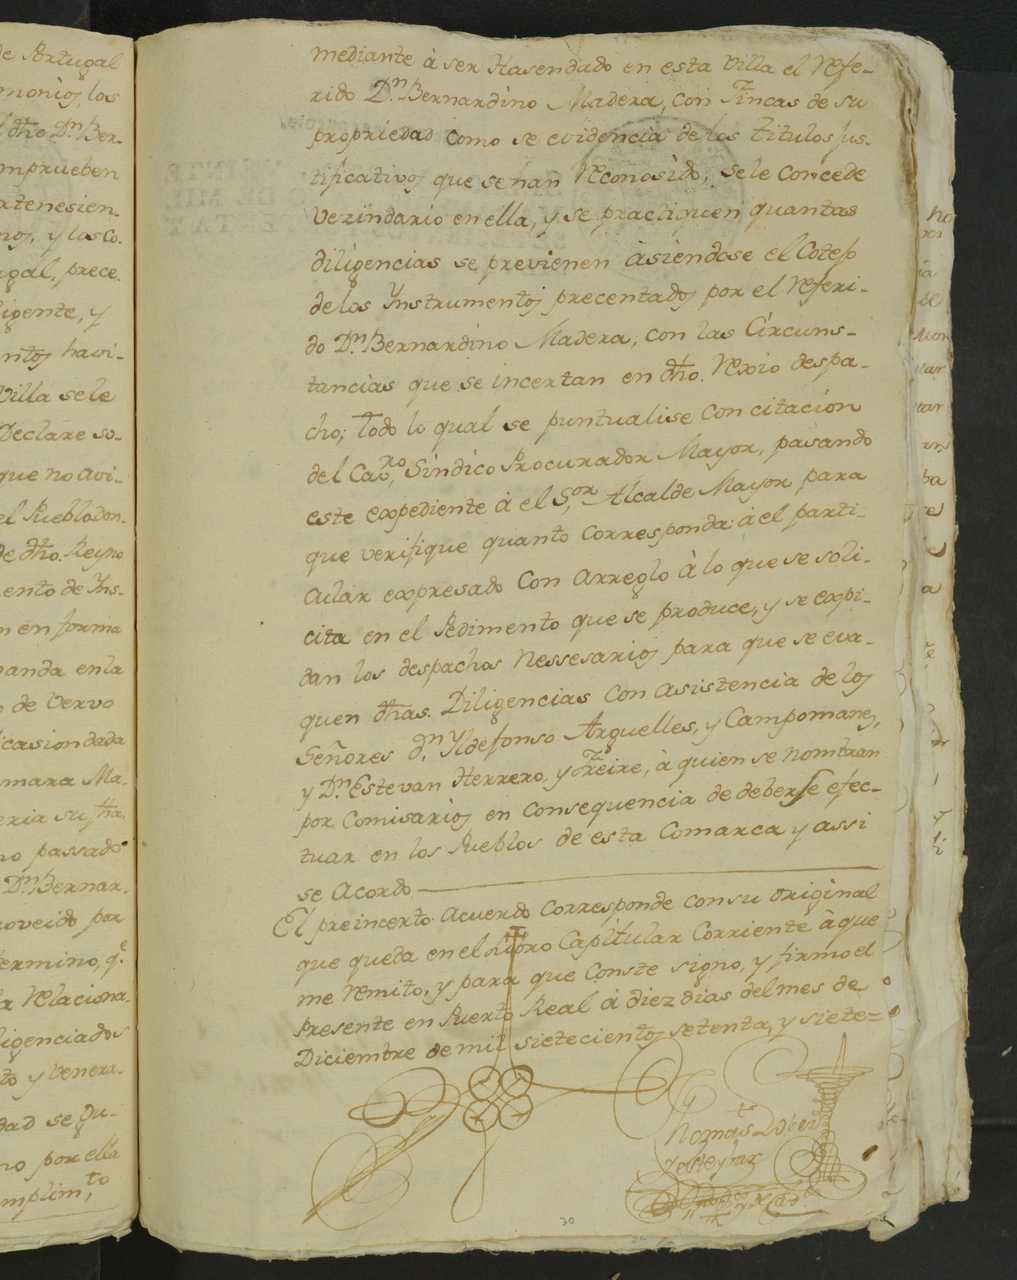 de Portugal
monios, los
l dho Dn Ber-
mprueben
rtenesien-
nos, y las Co-
ugal, prece-
ligente, y
ntos havi-
Villa sele
Declare so-
que no avi-
el Pueblo don-
de dho. Reyno
ento de Yns-
n en forma
manda en la
o de Vervo
icasion dada
mara Ma-
eria su fha.
no passado
Dn Bernar-
roveido por
termino, qe.
la Relaciona-
ligenciados
to y Venera-
dad se Du-
no por ella
mplimto
mediante à ser Hasendado en esta Villa el Refe-
rido Dn. Bernardino Madera, con Fincas de su
propriedad como se evidencia de los Titulos Jus-
tificativos que se han Reconosido; sele Concede
Vezindario en ella, y se practiquen quantas
diligencias se previenen àsiendose el Cotejo
delos Ynstrumentos precentados por el Referi-
do Dn. Bernardino Madera, con las Circuns-
tancias que se incertan en dho. Rexio despa-
cho; Todo lo qual se puntualise Con citacion
del Cavro, Sindico Procurador Mayor, pasando
este expediente à el Sor. Alcalde Mayor para
que verifique quanto Corresponda à el parti-
cular expresado Con arreglo à lo que se soli-
cita en el Pedimento que se produce, y se expi-
dan los despachos Nessesarios para que se eva-
quen dhas. Diligencias Con asistencia de los
Señores dn. Yldefonso Arguelles, y Campomanes,
y Dn. Estevan Herrero, y Freire, à quien se Nombran
por Comisarios en Consequencia de deberse efec-
tuar en los Pueblos de esta Comarca y assi
se Acordo
El preincerto Acuerdo Corresponde con su original
que queda en el Libro Capitular Corriente à que
me Remito, y para que Conste signo, y firmo el
Presente en Puerto Real à diez dias del mes de
Diciembre de mil sietecientos setenta, y siete=
30